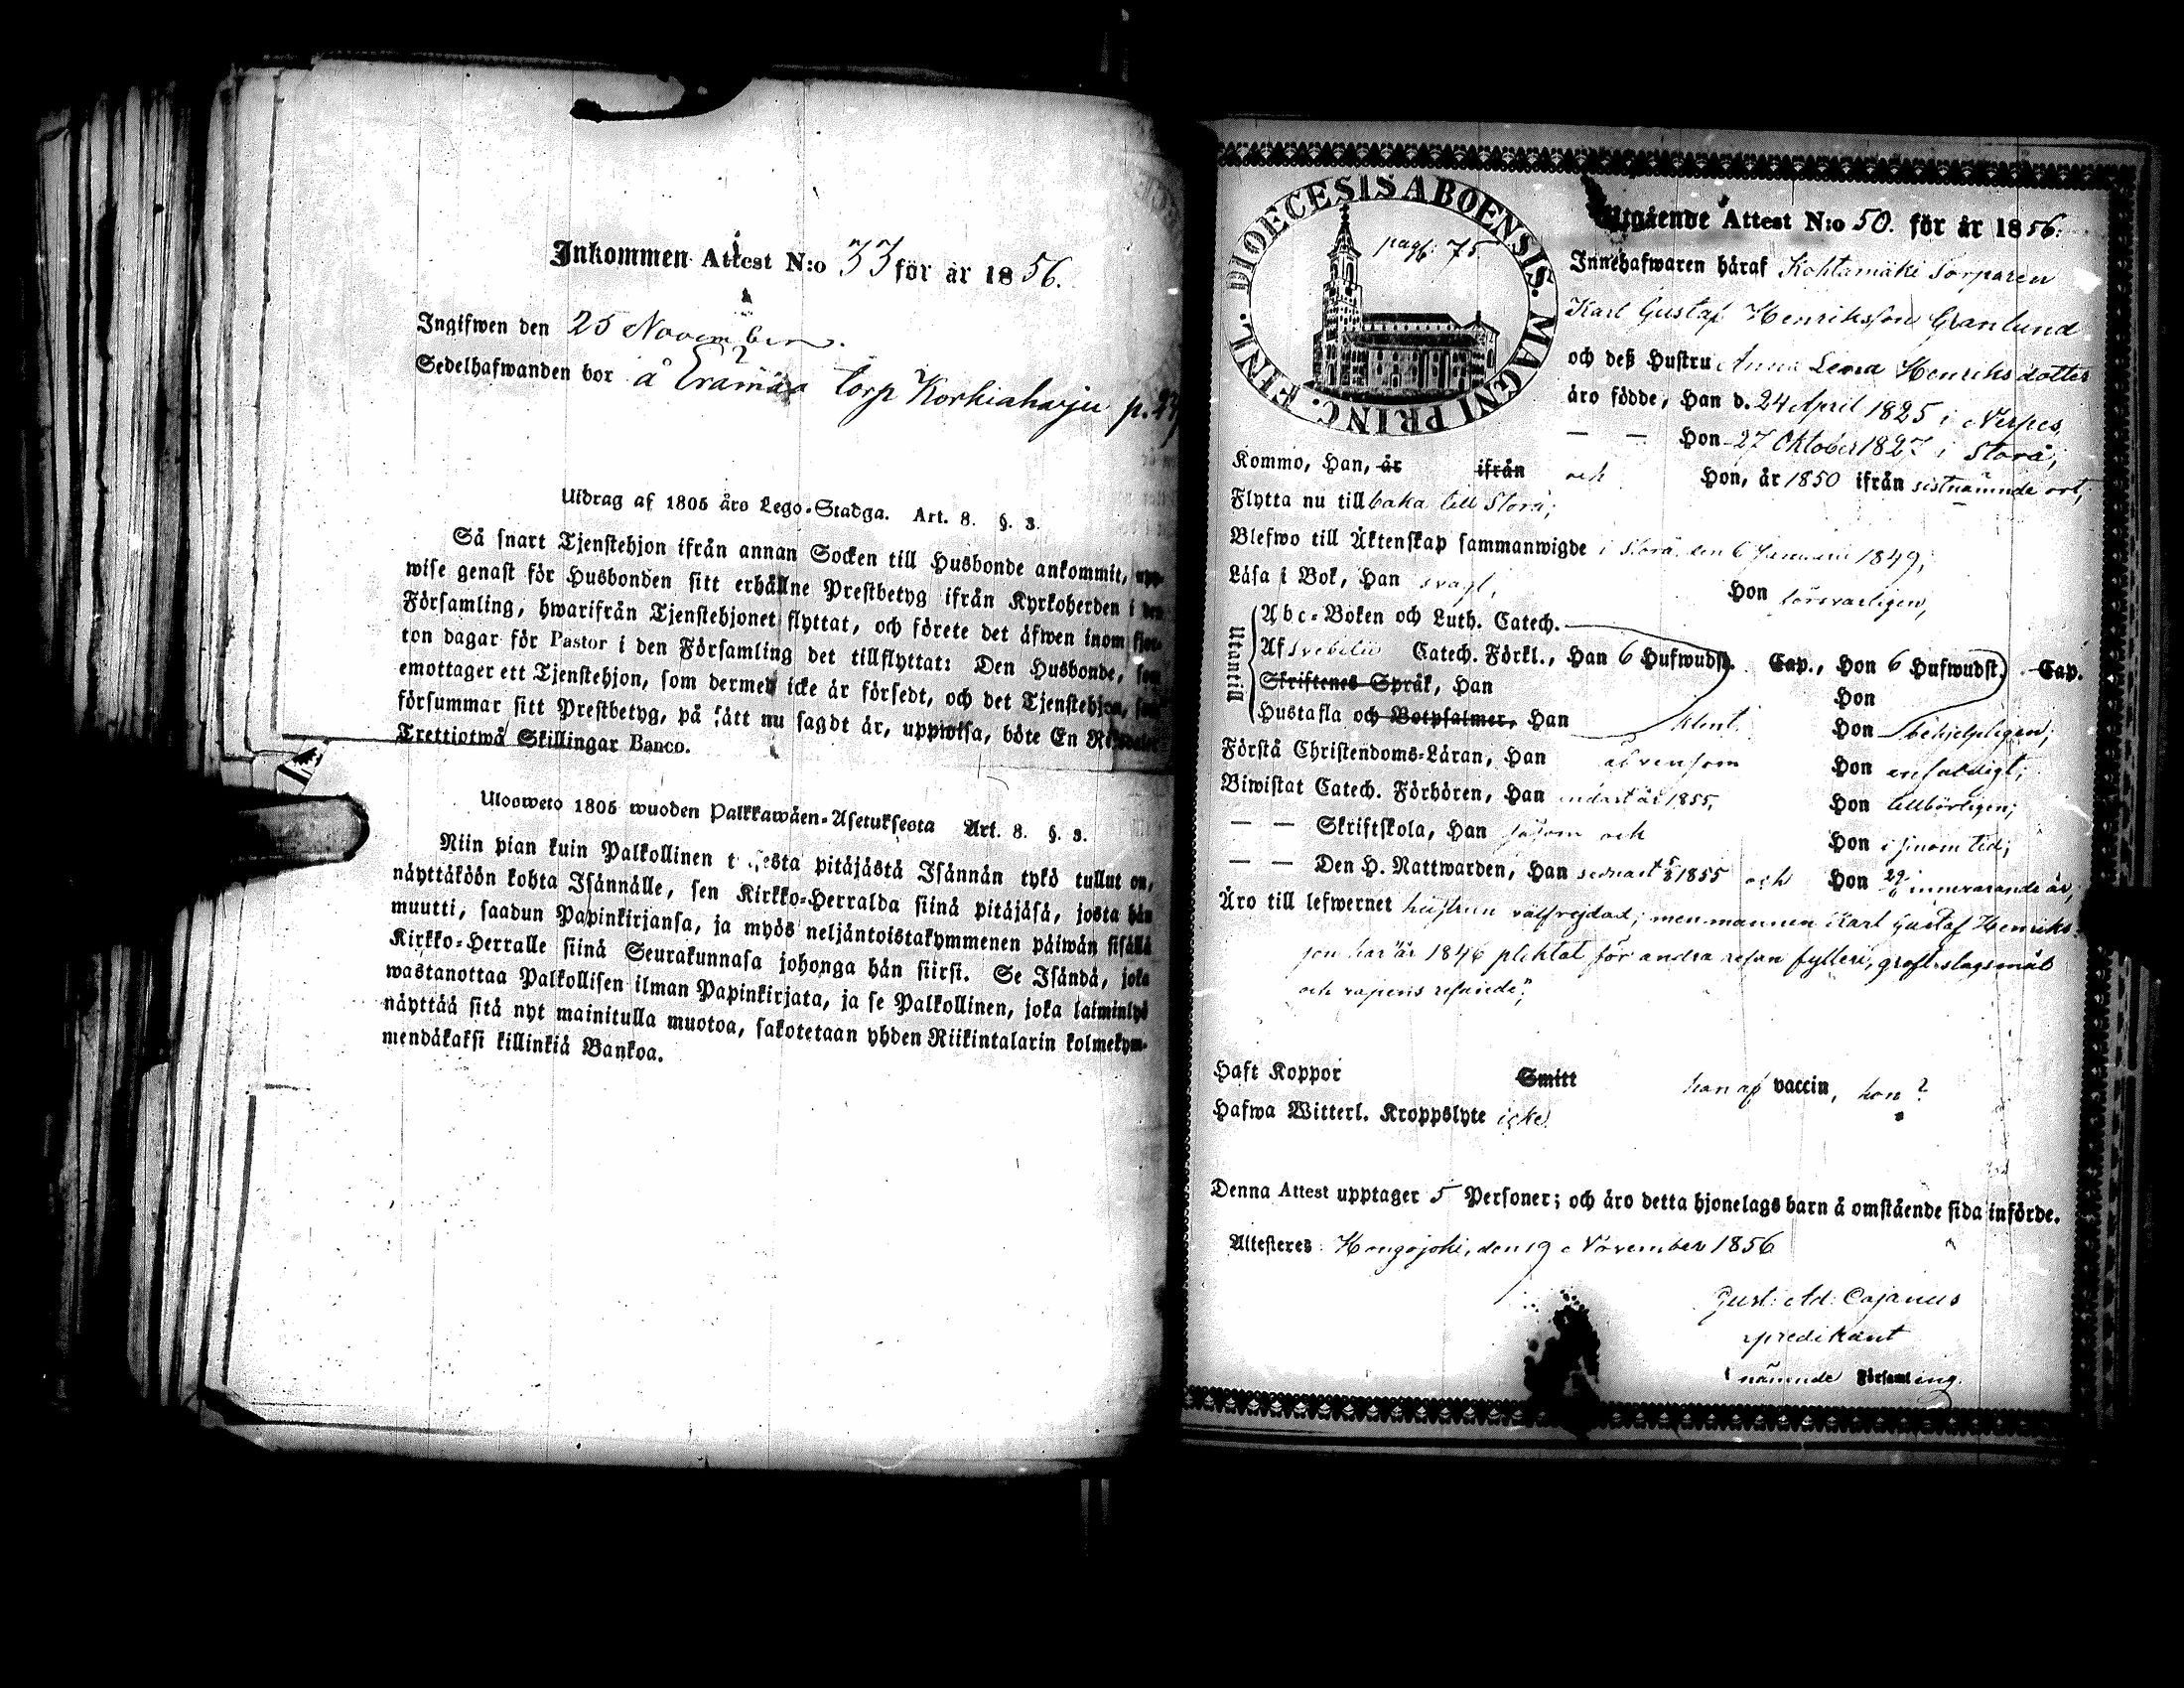 Inkommen Attest N:o 33 för år 1856.
Ingifwen den 25 November.
Sedelhafwanden bor å Eramaa torp Korkiaharju p.
Utdrag af 1805 års Lego-Stadga. Art. 8. §. 3.
Så snart Tjenstehjon ifrån annan Socken till Husbonde ankommit, upp-
wise genast för Husbonden sitt erhållne Prestbetyg ifrån Kyrkoherden i den
Församling, hwarifrån Tjenstehjonet flyttat, och förete det äfwen inom fjor-
ton dagar för Pastor i den Församling det tillflyttat: Den Husbonde, som
emottager ett Tjenstehjon, som dermed icke är försedt, och det Tjenstehjon, som
försummar sitt Prestbetyg, på sätt nu sagdt är, uppwisa, böte En Riksdaler
Trettiotwå Skillingar Banco.
Ulosweto 1805 wuoden Palkkawäen-Asetuksesta Art. 8. §. 3.
Niin pian kuin Palkollinen toisesta pitäjästä Isännän tykö tullut on,
näyttäköön kohta Isännälle, sen Kirkko-Herralda siinä pitäjäsä, josta hän
muutti, saadun Papinkirjansa, ja myös neljäntoistakymmenen päiwän sisällä
Kirkko-Herralle siinä Seurakunnasa johonga hän siirsi. Se Isändä, joka
wastanottaa Palkollisen ilman Papinkirjata, ja se Palkollinen, joka laiminlyö
näyttää sitä nyt mainitulla muotoa, sakotetaan yhden Riikintalarin kolmekym-
mendäkaksi killinkiä Bankoa.
DIOECESIS ABOENSIS. MAGNI PRINC. FINL.
pag: 75
Utgående Attest N:o 50. för år 1856.
Innehafwaren häraf Kohtamäki Torparen
Karl Gustaf Henriksson Granlund
och deß Hustru Anna Lena Henriksdotter
äro födde, Han d. 24 April 1825 i Nerpes,
— — Hon 27 Oktober 1827 i Storå;
Komme, Han, år ifrån och Hon, år 1850 ifrån sistnämnde ort;
Flytta nu tillbaka till Storå;
Blefwo till Äktenskap sammanwigde i Storå den 6 Januarii 1849;
Läsa i Bok, Han svagt, Hon försvarligen;
Utantill
Abc-Boken och Luth. Catech.
Af Svebilii Catech. Förkl., Han 6 Hufwudst. Cap., Hon 6 Hufwudst. Cap.
Skriftenes Språk, Han Hon
Hustafla och Botpsalmer, Han klent. Hon behjelpligen;
Förstå Christendoms-Läran, Han äfvensom Hon enfaldigt;
Biwistat Catech. Förhören, Han endast år 1855, Hon tillbörligen;
— — Skriftskola, Han såsom och Hon i sinom tid;
— — Den H. Nattwarden, Han senast 1855 och Hon innevarande år;
Äro till lefwernet hustrun välfrejdad; men mannen Karl Gustaf Henriks-
son har "år 1846 pliktat för andra resan fylleri, groft slagsmål
och vapens resande";
Haft Koppor Smitt han af vaccin, hon ?
Hafwa Witterl. Kroppslyte icke.
Denna Attest upptager 5 Personer; och äro detta hjonelags barn å omstående sida införde.
Attesteres: Hongojoki, den 19 November 1856
Gust: Ad: Cajanus
predikant
i nämnde Församling.